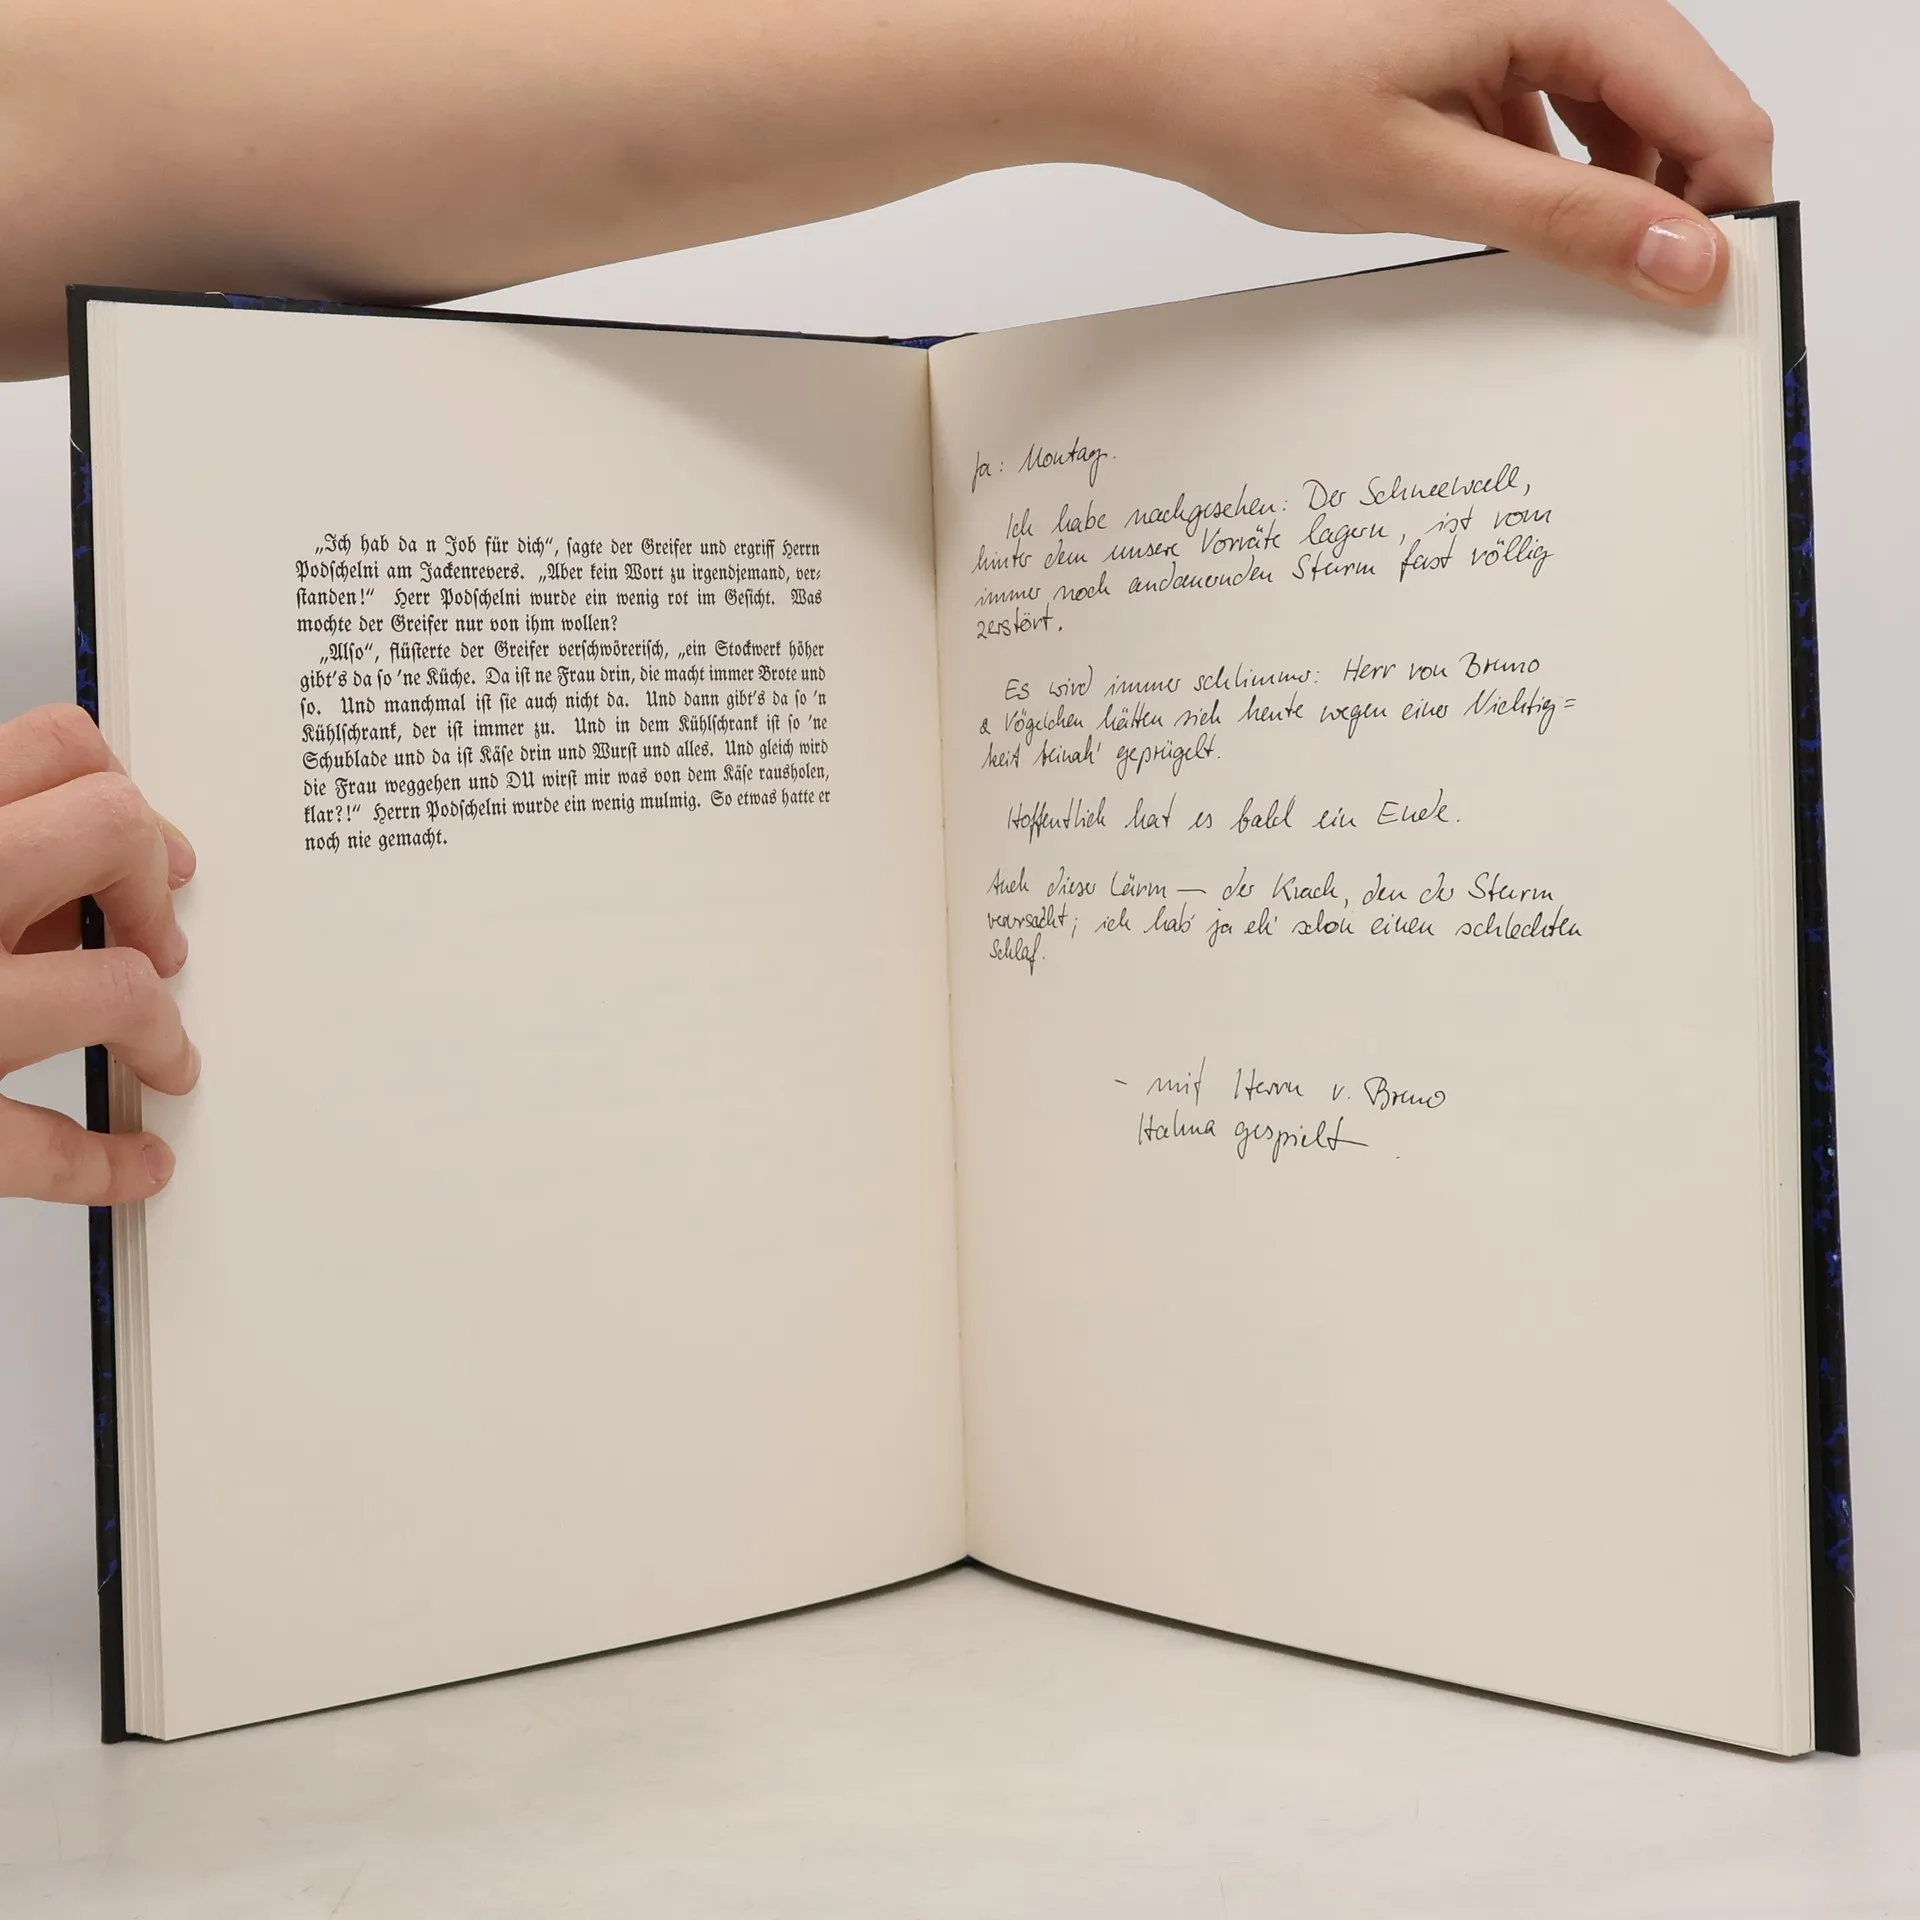 „Ich hab da n Job für dich“, ſagte der Greifer und ergriff Herrn
Podſchelni am Jackenrevers. „Aber kein Wort zu irgendjemand, ver⸗
ſtanden!“ Herr Podſchelni wurde ein wenig rot im Geſicht. Was
mochte der Greifer nur von ihm wollen?
„Alſo“, flüſterte der Greifer verſchwöreriſch, „ein Stockwerk höher
gibt's da ſo 'ne Küche. Da iſt ne Frau drin, die macht immer Brote und
ſo. Und manchmal iſt ſie auch nicht da. Und dann gibt's da ſo 'n
Kühlſchrank, der iſt immer zu. Und in dem Kühlſchrank iſt ſo 'ne
Schublade und da iſt Käſe drin und Wurſt und alles. Und gleich wird
die Frau weggehen und DU wirſt mir was von dem Käſe rausholen,
klar?!“ Herrn Podſchelni wurde ein wenig mulmig. So etwas hatte er
noch nie gemacht.
Ja: Montag.
Ich habe nachgesehen: Der Schneewall,
hinter dem unsere Vorräte lagern, ist vom
immer noch andauernden Sturm fast völlig
zerstört.
Es wird immer schlimmer: Herr von Bruno
& Vögelchen hätten sich heute wegen einer Nichtig=
keit beinah' geprügelt.
Hoffentlich hat es bald ein Ende.
Auch dieser Lärm — der Krach, den der Sturm
verursacht; ich hab' ja eh' schon einen schlechten
Schlaf.
– mit Herrn v. Bruno
Halma gespielt